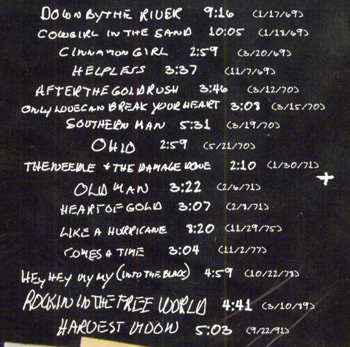 DOWN BY THE RIVER 9:16 (1/17/69)
COWGIRL IN THE SAND 10:05 (1/18/69)
CINNAMON GIRL 2:59 (3/20/69)
HELPLESS 3:37 (11/7/69)
AFTER THE GOLDRUSH 3:46 (3/12/70)
ONLY LOVE CAN BREAK YOUR HEART 3:08 (3/15/70)
SOUTHERN MAN 5:31 (3/19/70)
OHIO 2:59 (5/21/70)
THE NEEDLE + THE DAMAGE DONE 2:10 (1/30/71)
OLD MAN 3:22 (2/6/71)
HEART OF GOLD 3:07 (2/8/71)
LIKE A HURRICANE 8:20 (11/29/75)
COMES A TIME 3:04 (11/2/77)
HEY, HEY MY MY (INTO THE BLACK) 4:59 (10/22/78)
ROCKIN IN THE FREE WORLD 4:41 (3/10/89)
HARVEST MOON 5:03 (9/22/91)